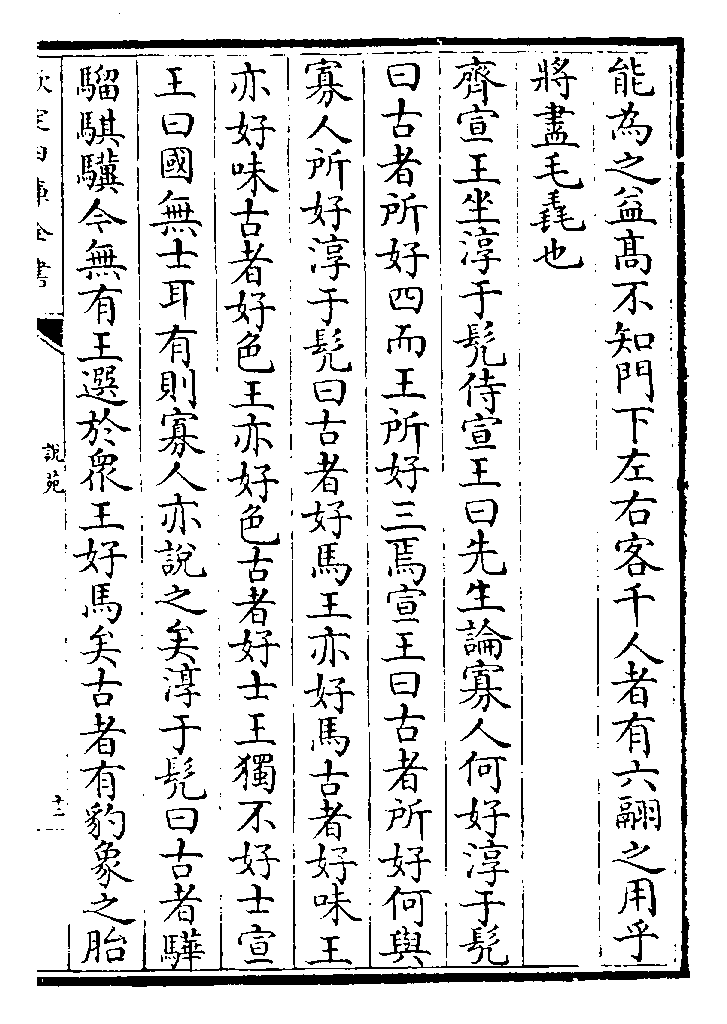 能為之益高不知門下左右客千人者有六翮之用乎
將盡毛毳也
齊宣王坐淳于髡侍宣王曰先生論寡人何好淳于髡
曰古者所好四而王所好三焉宣王曰古者所好何與
寡人所好淳于髡曰古者好馬王亦好馬古者好味王
亦好味古者好色王亦好色古者好士王獨不好士宣
王曰國無士耳有則寡人亦說之矣淳于髡曰古者驊
騮騏驥今無有王選於衆王好馬矣古者有豹象之胎
欽定四庫全書
說苑
十二